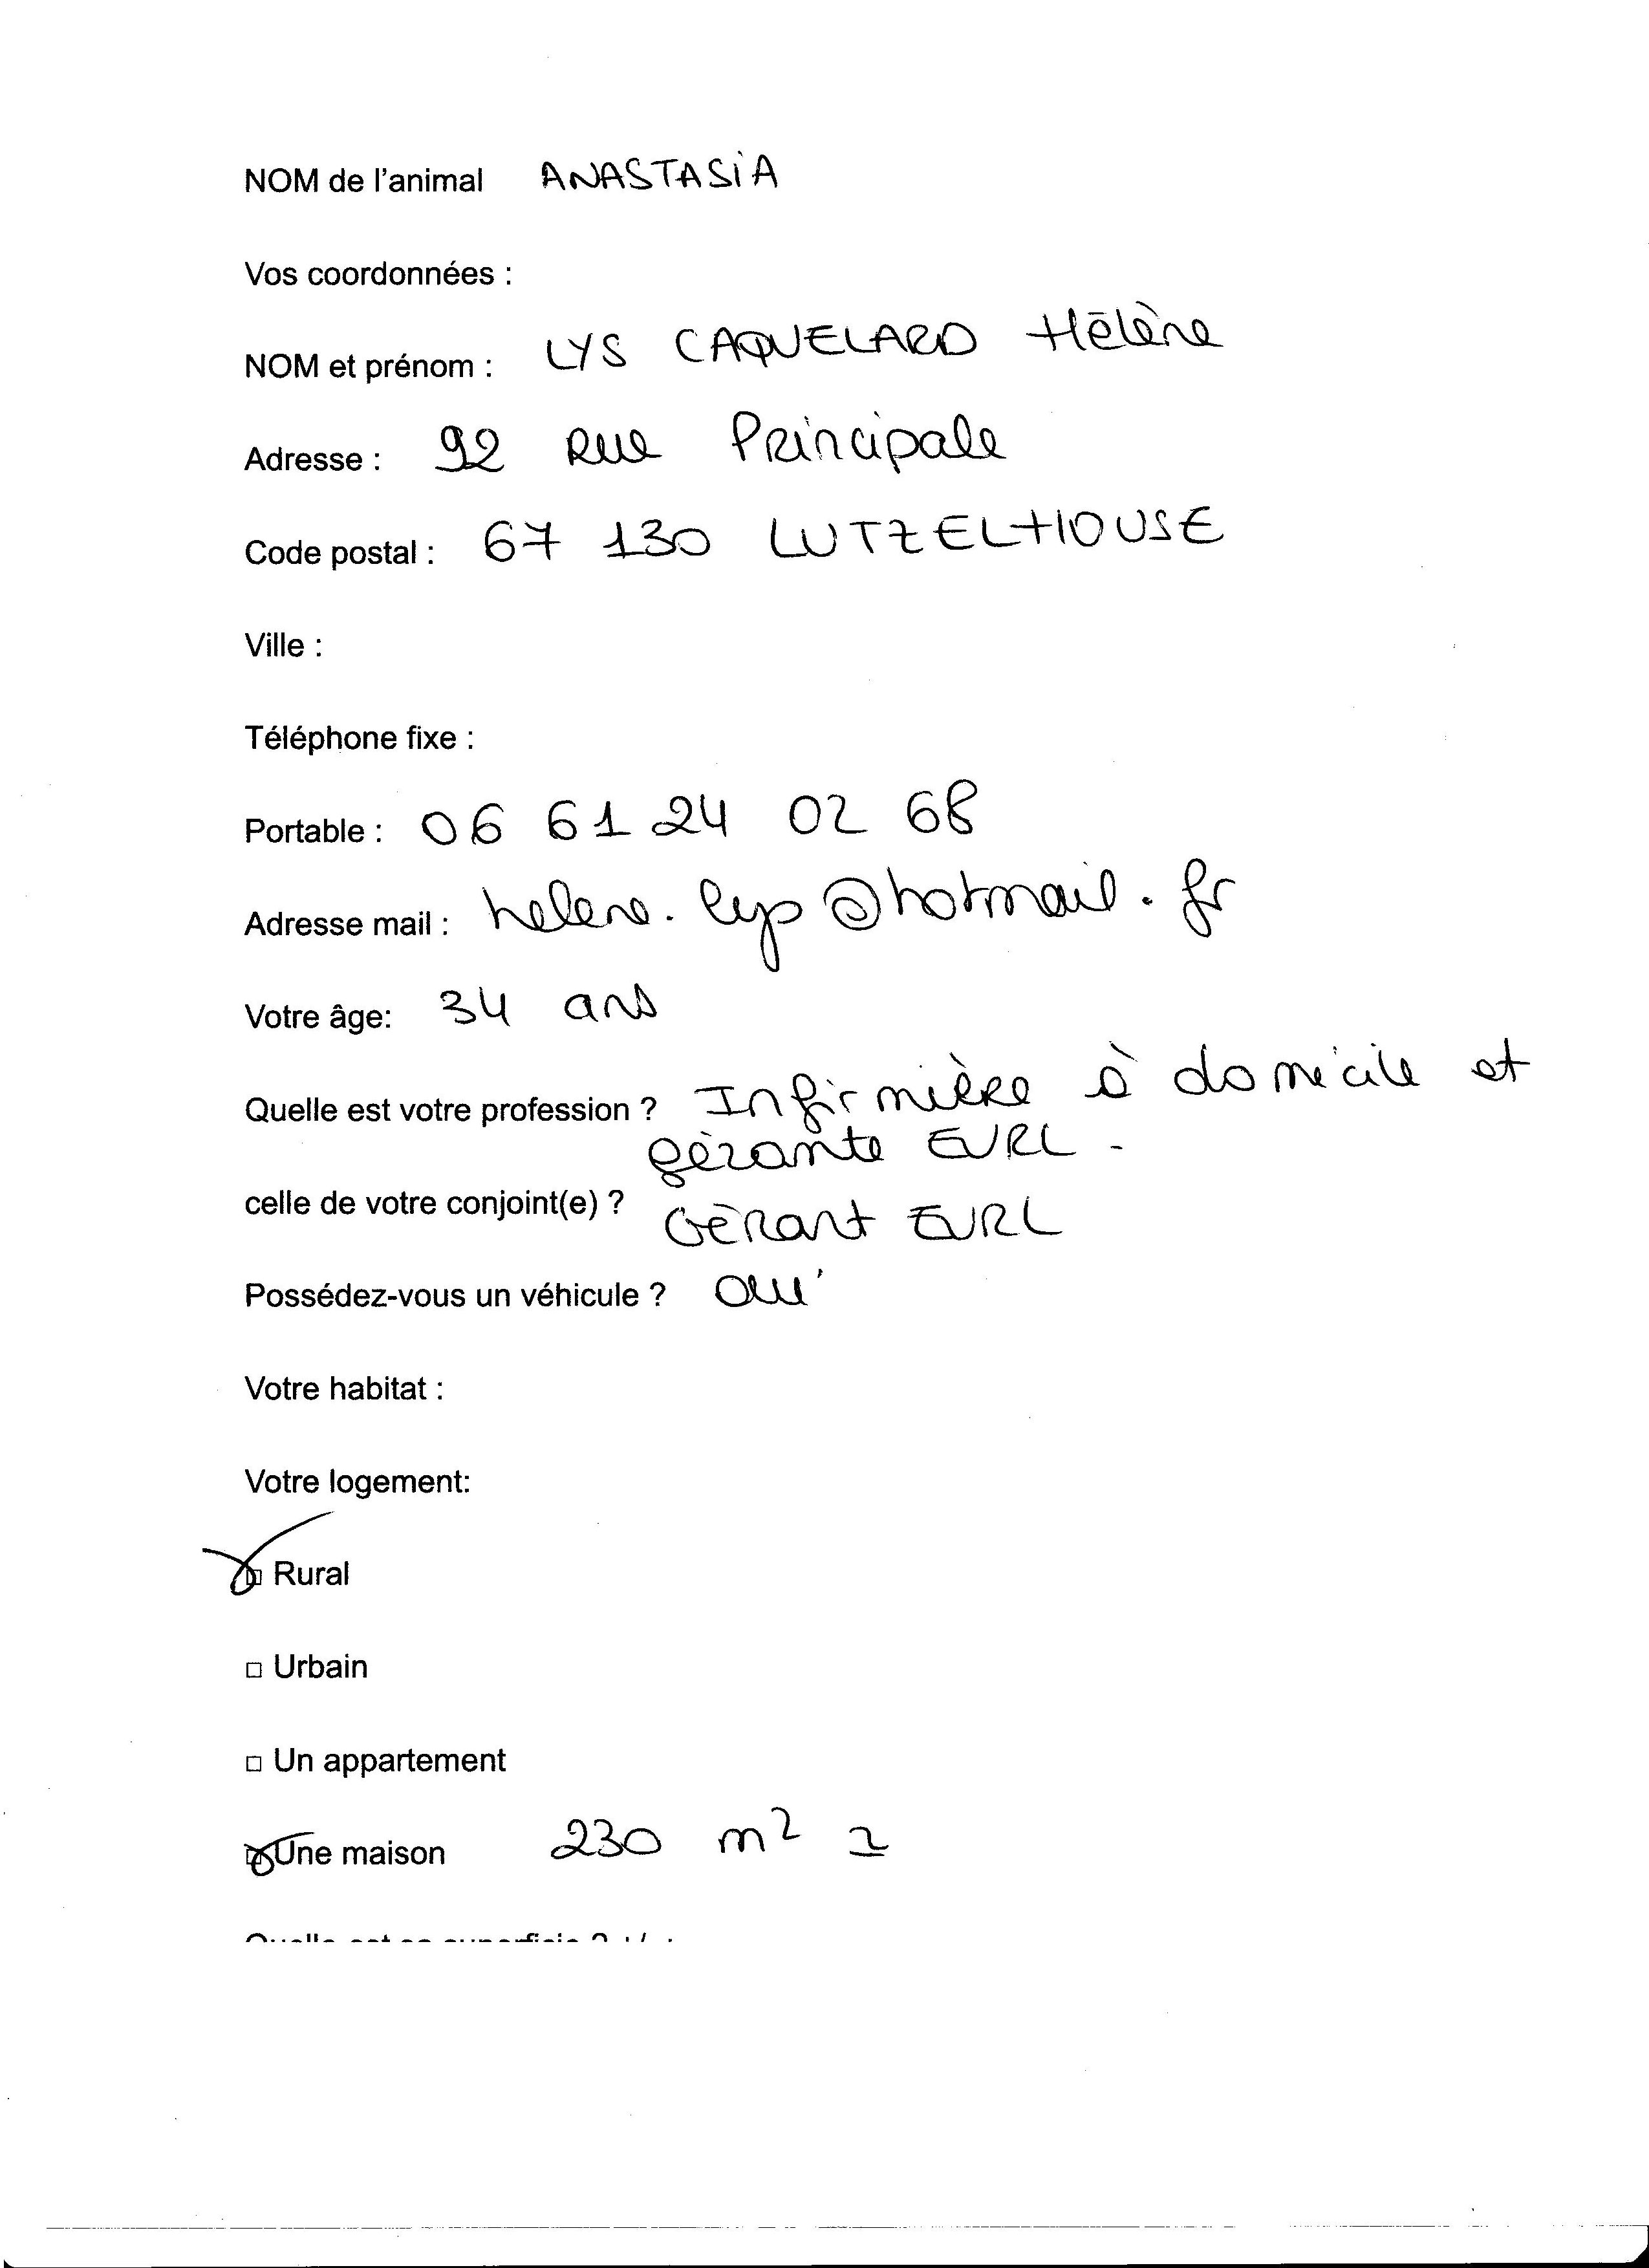 NOM de l'animal ANASTASiA
Vos coordonnées :
NOM et prénom : LYS CAQUELARD Hélène
Adresse : 92 Rue Principale
Code postal : 67 130 LUTZELHOUSE
Ville :
Téléphone fixe :
Portable : 06 61 24 02 68
Adresse mail : helene.lys@hotmail.fr
Votre âge: 34 ans
Quelle est votre profession ? Infirmière à domicile et
gérante EURL -
celle de votre conjoint(e) ? Gérant EURL
Possédez-vous un véhicule ? oui
Votre habitat :
Votre logement:
Rural
□ Urbain
□ Un appartement
Une maison 230 m²
Quelle est sa superficie ? +/-